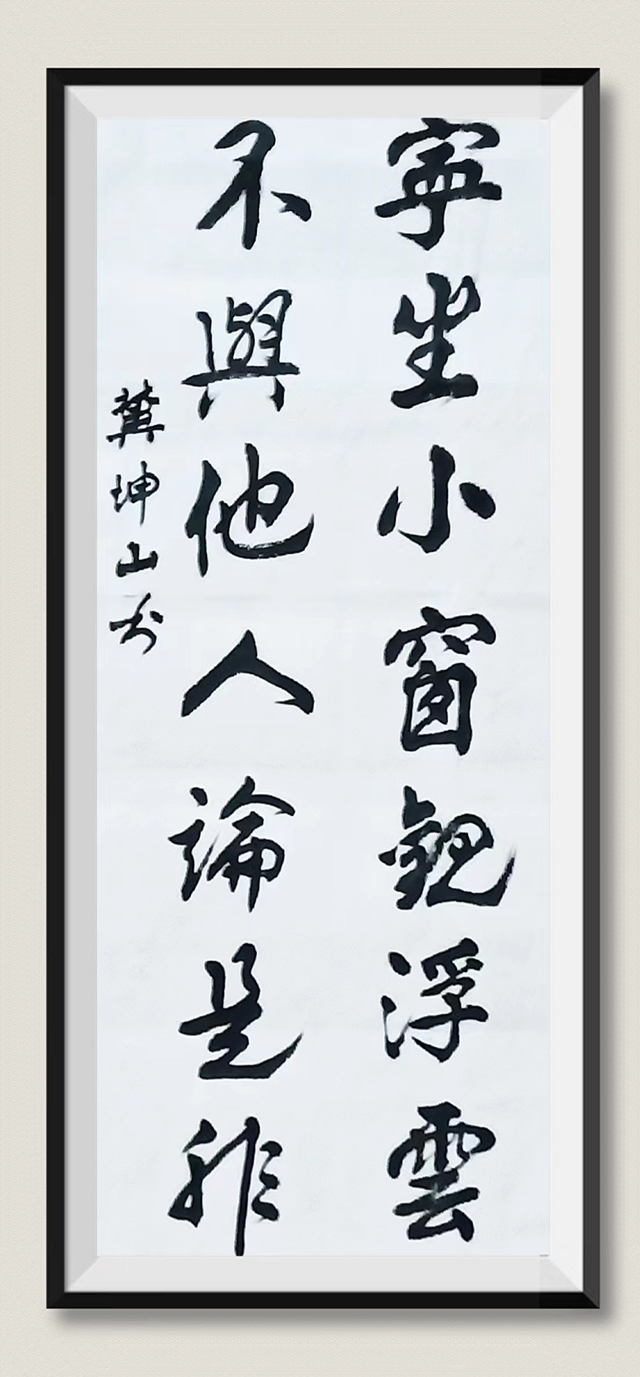 寧坐小窗觀浮雲
不與他人論是非
龔坤山书